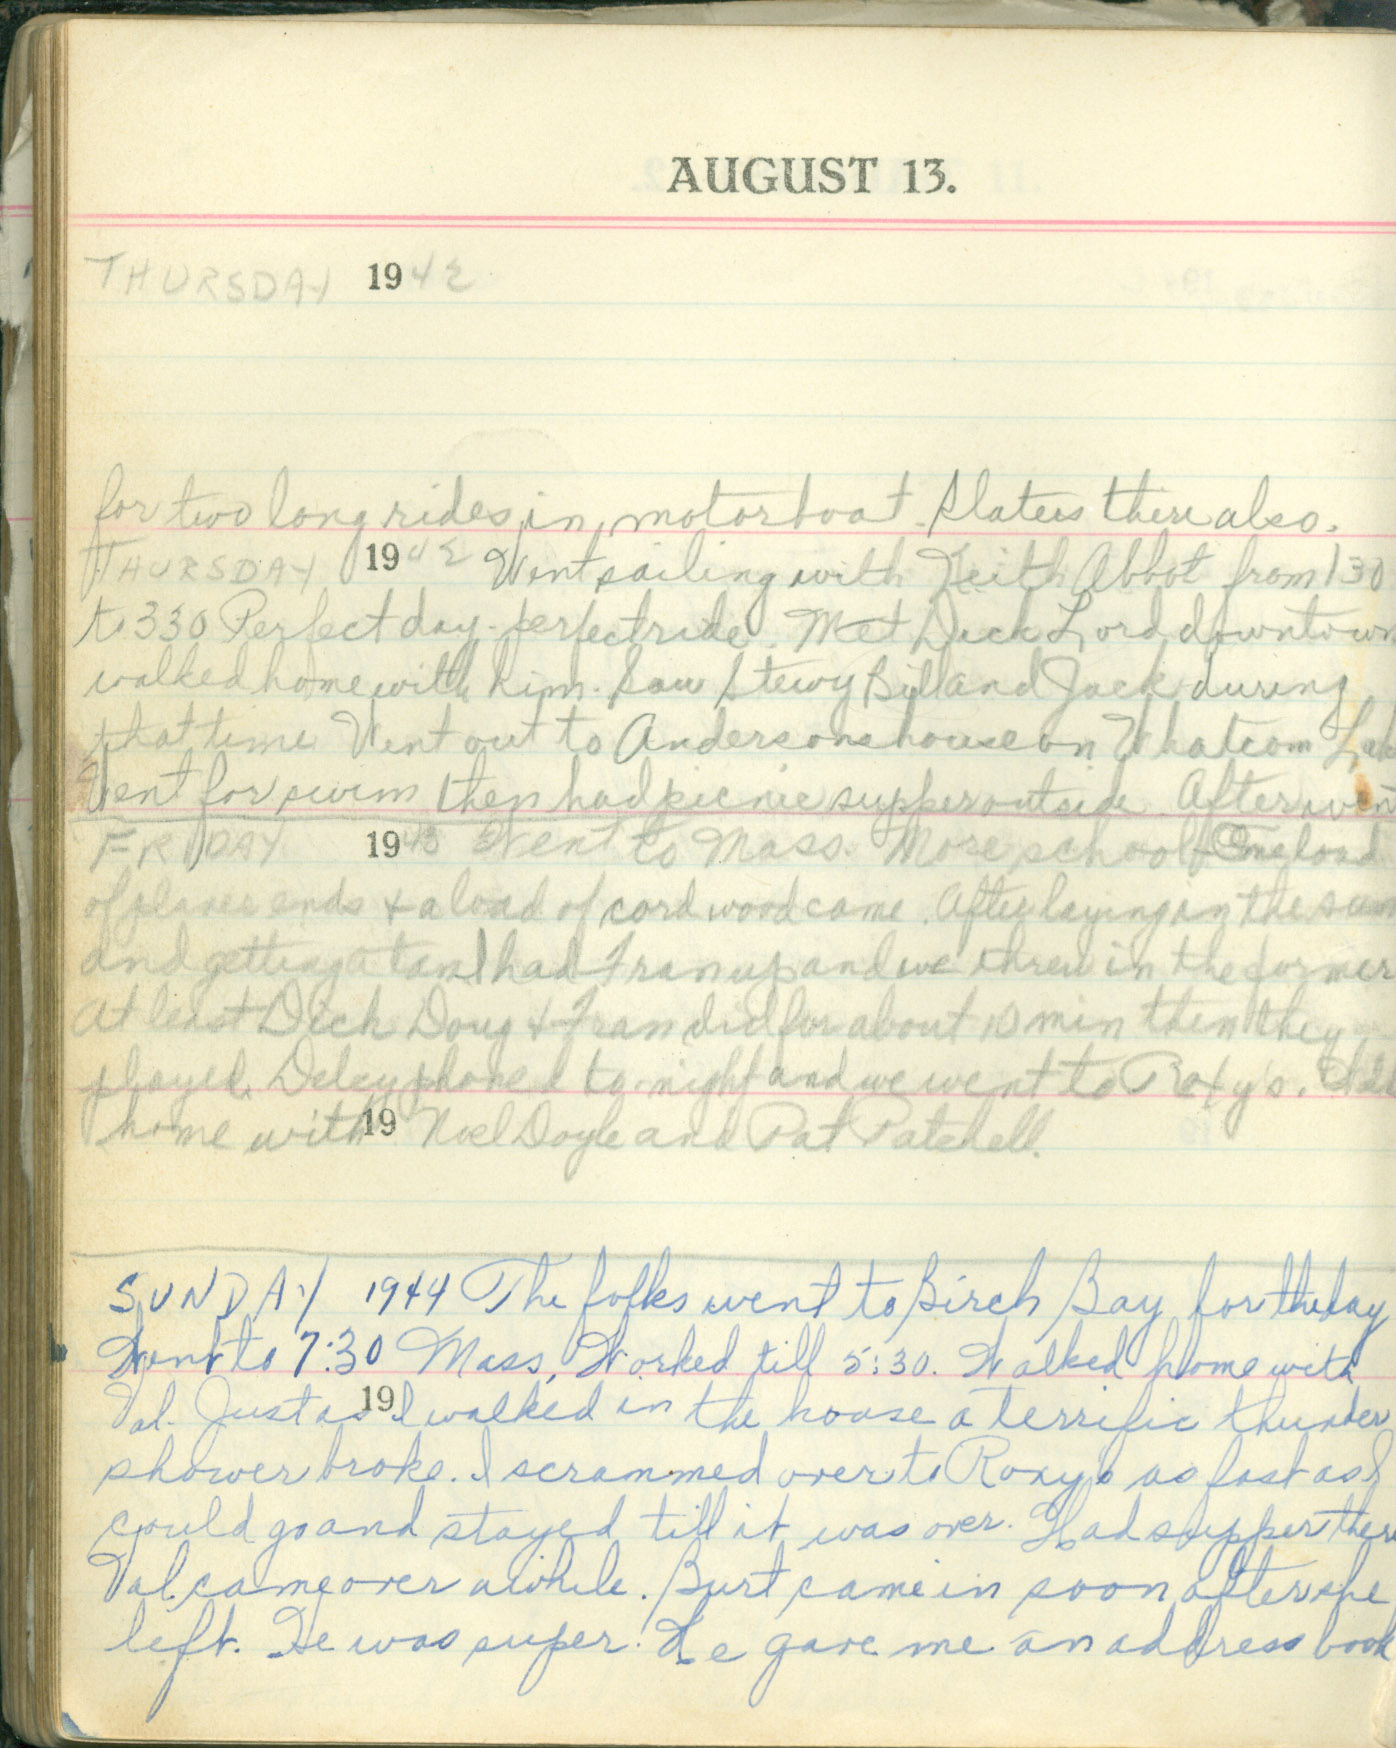 AUGUST 13.
THURSDAY 1942
for two long rides in motorboat. Slaters there also.
THURSDAY 1942 Went sailing with Keith Abbot from 130
to 330 Perfect day - perfect ride. Met Dick Lord downtown
walked home with him. Saw Stewy Bill and Jack during
that time Went out to Andersons house on Whatcom Lak
Went for swim then had picnic supper outside. After wen
FRIDAY 1943 Went to Mass. More school One load
of planer ends & a load of cord wood came. After laying in the sun
and getting a tan I had Fran up and we threw in the former
At least Dick Doug & Fran did for about 10 min then they
played. Delcy phoned to-night and we went to Roxy's.
home with 19 Noel Doyle and Pat Patchell.
SUNDAY 1944 The folks went to Birch Bay for the day
Went to 7:30 Mass, Worked till 5:30. Walked home with
Val. Just as 19 I walked in the house a terrific thunder
shower broke. I scrammed over to Roxy's as fast as I
could go and stayed till it was over. Had supper there
Val came over awhile. Burt came in soon after she
left. He was super. He gave me an address book